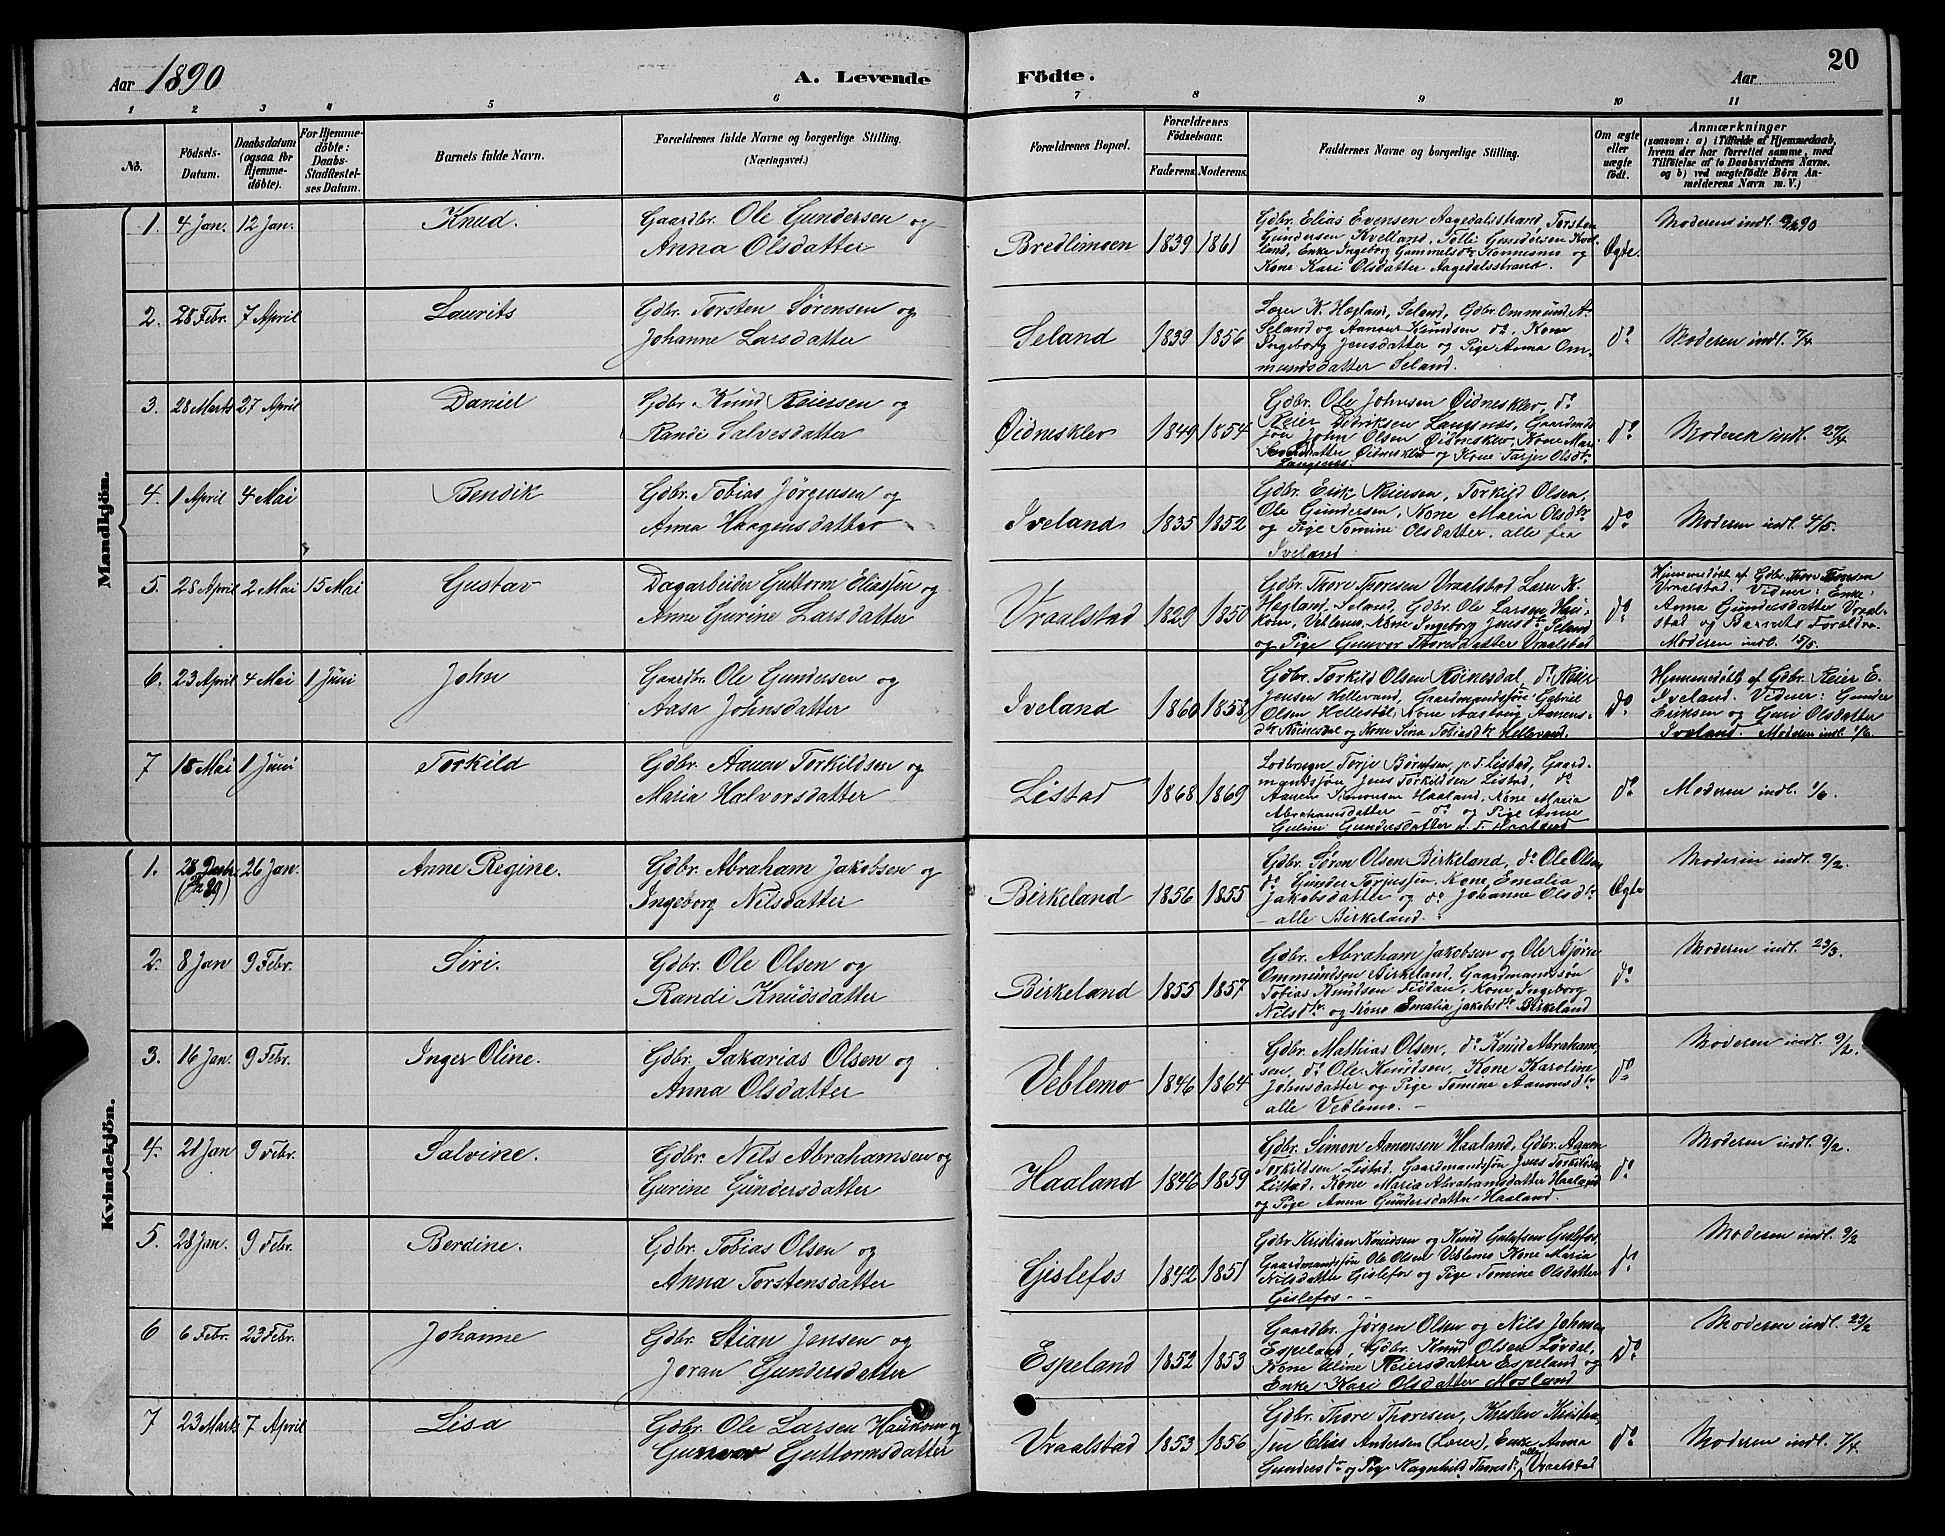 Aar 1890
A. Levende
Födte.
Aar
20
1 2 3 4 5 6 7 8 9 10 11
No.
Födsels-Datum.
Daabsdatum (ogsaa for Hjemme-döbte).
For Hjemme-döbte: Daabs-Stadfæstel-ses Datum.
Barnets fulde Navn.
Forældrenes fulde Navne og borgerlige Stilling. (Næringsvei.)
Forældrenes Bopæl.
Forældrenes Födselsaar.
Faderens. Moderens.
Faddernes Navne og borgerlige Stilling.
Om ægte eller uægte födt.
Anmærkninger
(saasom: a) i Tilfælde af Hjemmedaab, hvem der har forrettet samme, med Tilföielse af to Daabsvidners Navne, og b) ved uægtefödte Börn An-melderens Navn m. V.)
Mandkjön.
1. 4 Jan. 12 Jan. Knud. Gaardbr. Ole Gundersen og
Anna Olsdatter
Bredlimoen 1839 1861
Gdbr. Elias Evensen Aagedalsstrand, Torsten
Gundersen Kvelland, Tolli Gundersen Kvel-
land, Enke Ingeborg Gammelsdtr. og
Kone Kari Olsdatter Aagedalsstrand.
Ægte.
Moderens indl.
2. 28 Febr. 7 April Laurits Gdbr. Torsten Sørensen og
Johanne Larsdatter
Seland 1839 1856
Lærer K. Høgland, Seland, Gdbr. Ommund A.
Seland og Aanon Knudsen do, Kone
Ingeborg Jensdatter og Pige Anna Om-
mundsdatter Seland.
do
Moderen indl. 7/4
3. 28 Marts 27 April Daniel Gdbr. Knud Reiersen og
Randi Salvesdatter
Øidnesklev 1849 1854
Gdbr. Ole Johnsen Øidnesklev, do
Reier Didriksen Langnes, Gaardmds
søn John Olsen Øidnesklev, Kone Mari
Øidnesklev og Kone Tarjer Olsdtr.
Langenes.
do
Moderen indl. 27/4
4. 1 April 4 Mai Bendik Gdbr. Tobias Jörgensen og
Anna Haagensdatter
Iveland 1835 1852
Gdbr. Erik Reiersen, Torkild Olsen,
Ole Gundersen, Kone Maria Olsdtr.
og Pige Tomine Olsdatter, alle fra
Iveland
Do
Moderen indl. 4/5.
5. 28 April 2 Mai 15 Mai Gustav Dagarbeider Guttorm Eliassen og
Anne Gurine Larsdatter
Vraalstad 1829 1850
Gdbr. Thore Thoresen Vraalstad Lærer K.
Høgland, Seland, Gdbr. Ole Larsen Hau-
kom, Veblemo, Kone Ingeborg Jensdtr. Seland
og Pige Gunvor Thoresdatter Vraalstad
do
Hjemmedøbt af Gdbr. Thore Thoresen
Vraalstad. Vidner: Enke:
Anna Gundersdatter Vraal-
stad og Barnets Forældre.
Moderen indl. 15/5.
6. 23 April 4 Mai 1 Juni John Gaardbr. Ole Gundersen og
Aasa Johnsdatter
Iveland 1860 1858
Gdbr. Torkild Olsen Røinesdal, do Reier
Jensen Hellevand, Gaardmandssøn Gabriel
Olsen Hellestøl, Kone Aasborg Aanens-
dtr Røinesdal og Kone Sina Tobiasdtr Hellevand.
do
Hjemmedøbt af Gdbr. Reier E.
Iveland. Vidner: Gunder
Eriksen og Guro Olsdatter
Iveland. Moderen indl. 1/6
7 18 Mai 1 Juni Torkild Gdbr. Aanen Torkildsen og
Maria Halvorsdatter
Listad 1868 1869
Torje Børufsen p.t. Listad, Gaard-
mandssøn Jens Torkildsen Listad, do
Aanen Simonsen Haaland, Kone Maria
Abrahamsdatter – do og Pige Anne
Guline Gundersdatter p.t. Haaland
do
Moderen indl. 1/6.
Kvindekjön.
1. 28 Decbr. (89) 26 Jan. Anne Regine. Gdbr. Abraham Jakobsen og
Ingeborg Nilsdatter
Birkeland 1856 1855
Gdbr. Søren Olsen Birkeland, do Ole Olsen
do Gunder Torjussen, Kone Emalia
Jakobsdatter og do Johanne Olsdtr.
– alle Birkeland.
Ægte
Moderen indl. 9/2.
2. 8 Jan 9 Febr. Siri. Gdbr. Ole Olsen og
Randi Knudsdatter
Birkeland 1855 1857
Gdbr. Abraham Jakobsen og Ole Bjørn
Ommundsen Birkeland, Gaardmandssøn
Tobias Knudsen Fiddan, Kone Ingeborg
Nilsdtr. og Kone Emalia Jakobsdtr. Birkeland
do
Moderen indl. 23/3.
3. 16 Jan. 9 Febr. Inger Oline. Gdbr. Sakarias Olsen og
Anna Olsdatter
Veblemo 1846 1864
Gdbr. Mathias Olsen, do Knud Abraham-
sen, do Ole Knudsen, Kone Karoline
Johnsdatter og Pige Tomine Aanonsdtr
alle Veblemo. –
do
Moderen indl. 9/2.
4. 21 Jan 9 Febr. Salvine. Gdbr. Nils Abrahamsen og
Gurine Gundersdatter
Haaland 1846 1859
Gdbr. Simon Amensen Haaland, Gdbr. Aanen
Torkildsen Listad, Gaardmandssøn Jens Torkildsen
Listad, Kone Maria Abrahamsdatter Haaland
og Pige Anna Gundersdatter Haaland.
do
Moderen indl. 9/2.
5. 28 Jan. 9 Febr. Berdine. Gdbr. Tobias Olsen og
Anna Torstensdatter
Gislefos 1842 1851
Gdbr. Kristian Knudsen og Knud Gulufsen Gislefos,
Gaardmandssøn Ole Olsen Veblemo Kone Maria
Nilsdatter Gislefos og Pige Tomine Olsdatter
Gislefos – –
do
Moderen indl. 9/2
6 6 Febr. 23 Febr. Johanne Gdbr. Stian Jensen og
Joran Gundersdatter
Espeland 1852 1853
Gaardbr. Jørgen Olsen og Nils Johnsen
Espeland, Gdbr. Knud Olsen Løvdal,
Kone Aline Reiersdatter Espeland og
Enke Kari Olsdatter Mosland
Do
Moderen indl. 23/2
7 23 Marts 7 April Lisa Gdbr. Ole Larsen Haukom og
Gunvor Guttormsdatter
Vraalstad 1853 1856
Gdbr. Thore Thoresen, Kristen Kristen-
sen Elias Andersen (Lærer), Enke Anna
Gundersdtr og Pige Ragnhild Thoresdtr, alle Vraalstad
do
Moderen indl. 7/4.